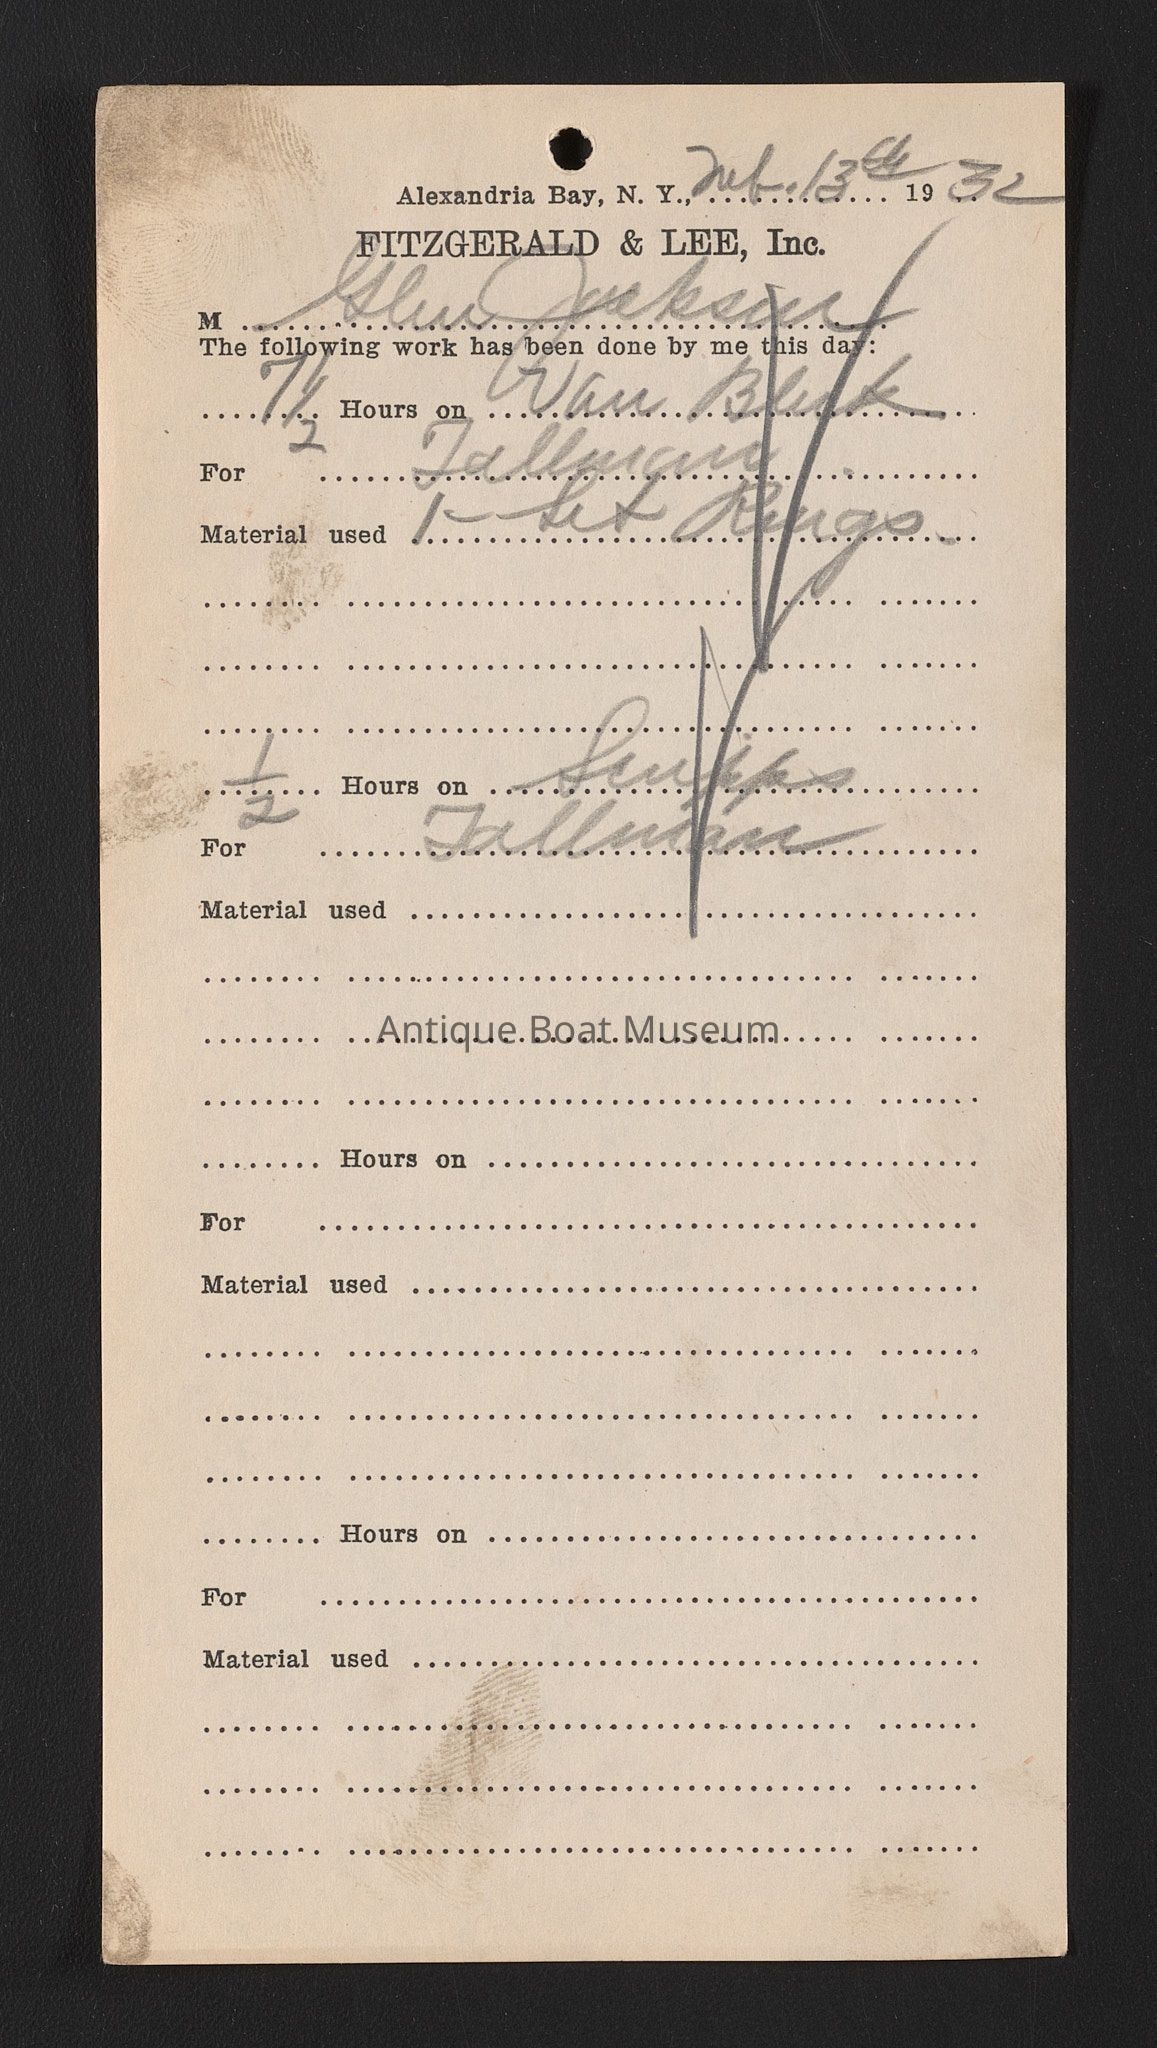 Alexandria Bay, N. Y., Feb. 13th 1932
FITZGERALD & LEE, Inc.
M Glen Jackson
The following work has been done by me this day:
7 1/2 Hours on Van Blerk
For Tallman
Material used 1- Set Rings.
1/2 Hours on Scripps
For Tallman
Material used
Antique Boat Museum
Hours on
For
Material used
Hours on
For
Material used